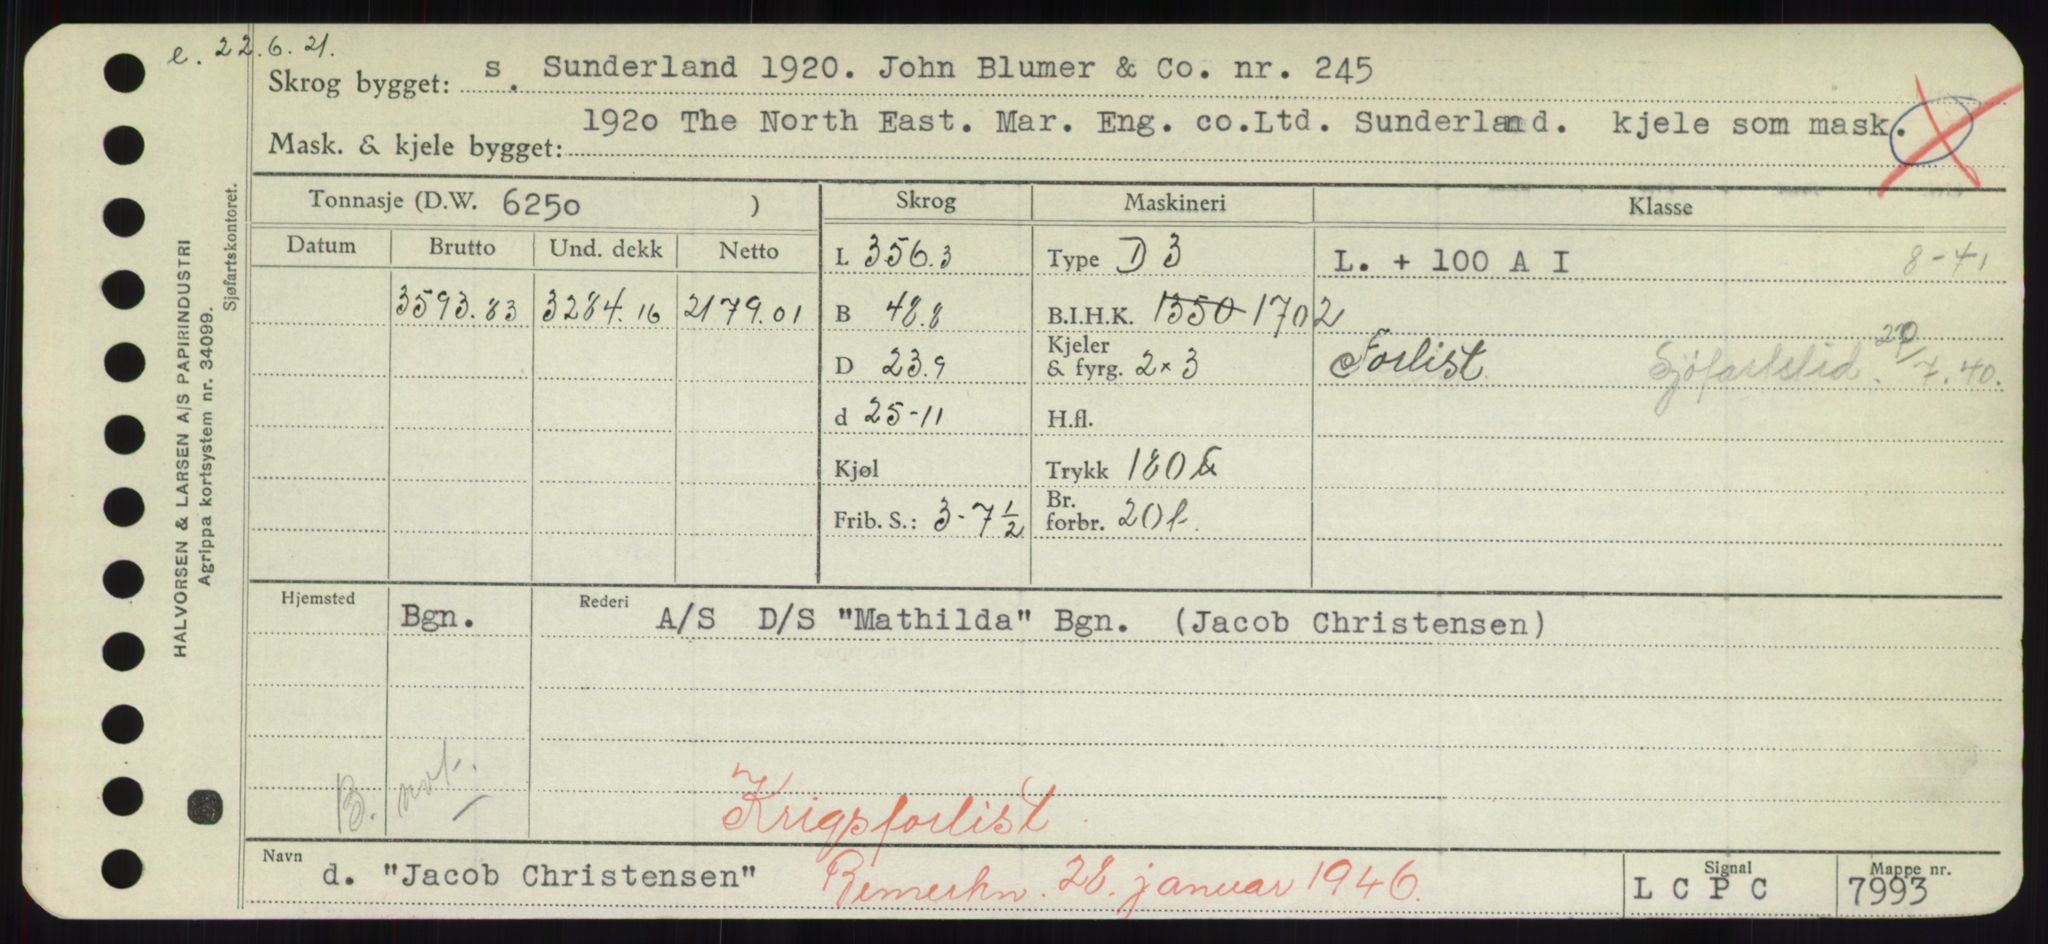 e. 22.6.21.
Skrog bygget: s. Sunderland 1920. John Blumer & Co. nr. 245
Mask. & kjele bygget: 192o The North East. Mar. Eng. co.Ltd. Sunderland. kjele som mask.
Tonnasje (D.W. 625o ) Skrog Maskineri Klasse
Datum Brutto Und. dekk Netto L 356.3 Type D 3 L. + 100 A I 8-41
3593.83 3284.16 2179.01 B 48.8 B.I.H.K. 1350 1702
D 23.9 Kjeler & fyrg. 2×3 Forlist Sjöfartstid. 20/7.40.
d 25-11 H.fl.
Kjøl Trykk 180 &
Frib. S.: 3-7 1/2 Br. forbr. 20 t.
Hjemsted Bgn. Rederi A/S D/S "Mathilda" Bgn. (Jacob Christensen)
B. not.
Krigsforlist
Navn d. "Jacob Christensen" Bemerkn. 28. januar 1946. Signal L C P C Mappe nr. 7993
HALVORSEN & LARSEN A/S PAPIRINDUSTRI
Agrippa kortsystem nr. 34099.
Sjøfartskontoret.